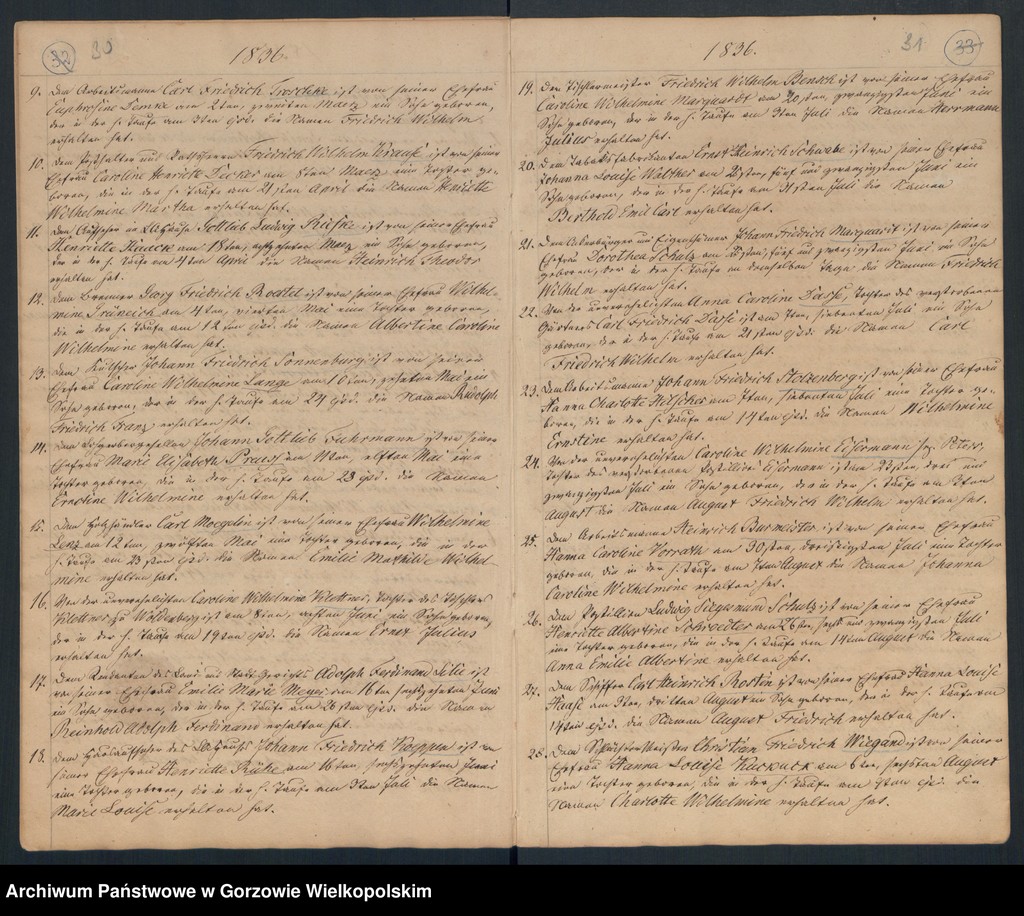 32 30
1836.
9. Dem Arbeitsmann Carl Friedrich Troschke ist von seiner Ehefrau
Euphrosine Lemke am 2ten, zweiten Maerz ein Sohn geboren,
der in der h. Taufe am 3ten ejsd. die Namen Friedrich Wilhelm
erhalten hat.
10. Dem Posthalter und Rathsherrn Friedrich Wilhelm Krause ist von seiner
Ehefrau Caroline Henriette Decker am 8ten Maerz eine Tochter ge-
boren, die in der h. Taufe am 21sten April die Namen Henriette
Wilhelmine Martha erhalten hat.
11. Dem Aufseher im Gottlieb Ludwig Kuske ist von seiner Ehefrau
Henriette Kuack am 18ten, achtzehnten Maerz ein Sohn geboren,
der in der h. Taufe am 4ten April die Namen Heinrich Theodor
erhalten hat.
12. Dem Brenner Georg Friedrich Roestel ist von seiner Ehefrau Wilhel-
mine am 4ten, vierten Mai eine Tochter geboren,
die in der h. Taufe am 12ten ejsd. die Namen Albertine Caroline
Wilhelmine erhalten hat.
13. Dem Johann Friedrich Sonnenburg ist von seiner
Ehefrau Caroline Wilhelmine Lange am 10ten, zehnten Mai ein
Sohn geboren, der in der h. Taufe am 24 ejsd. die Namen Rudolph
Friedrich Franz erhalten hat.
14. Dem Johann Gottlieb Fuhrmann ist von seiner
Ehefrau Marie Elisabeth am 11ten, elften Mai eine
Tochter geboren, die in der h. Taufe am 23 ejsd. die Namen
Ernstine Wilhelmine erhalten hat.
15. Dem Holzhändler Carl Moegelin ist von seiner Ehefrau Wilhelmine
Lenz am 12ten, zwölften Mai eine Tochter geboren, die in der
h. Taufe am 23sten ejsd. die Namen Emilie Mathilde Wilhel-
mine erhalten hat.
16. Von der unverehelichten Caroline Wilhelmine Klettner, Tochter des
Klettner zu Woldenberg ist am 8ten, achten Juni ein Sohn geboren,
der in der h. Taufe am 19ten ejsd. die Namen Ernst Julius
erhalten hat.
17. Dem Rendanten des Land und Stadt Gerichts Adolph Ferdinand Lilie ist
von seiner Ehefrau Emilie Marie Meyer am 16ten, sechszehnten Juni
ein Sohn geboren, der in der h. Taufe am 26sten ejsd. die Namen
Reinhold Adolph Ferdinand erhalten hat.
18. Dem Johann Friedrich Koeppen ist von
seiner Ehefrau Henriette Rühe am 16ten, sechszehnten Juni
eine Tochter geboren, die in der h. Taufe am 3ten Juli die Namen
Marie Louise erhalten hat.
1836.
31 33
19. Dem Tischlermeister Friedrich Wilhelm Bensch ist von seiner Ehefrau
Caroline Wilhelmine Marquardt am 20sten, zwanzigsten Juni ein
Sohn geboren, der in der h. Taufe am 3ten Juli die Namen Herrmann
Julius erhalten hat.
20. Dem Tabaksfabrikanten Ernst Heinrich Schwabe ist von seiner Ehefrau
Johanna Louise Walther am 25sten, fünf und zwanzigsten Juni ein
Sohn geboren, der in der h. Taufe am 31sten Juli die Namen
Berthold Emil Carl erhalten hat.
21. Dem Ackerbürger und Eigenthümer Johann Friedrich Marquardt ist von seiner
Ehefrau Dorothea Schulz am 25sten, fünf und zwanzigsten Juni ein Sohn
geboren, der in der h. Taufe an demselben Tage die Namen Friedrich
Wilhelm erhalten hat.
22. Von der unverehelichten Anna Caroline Dasse, Tochter des verstorbenen
Gärtners Carl Friedrich Dasse ist am 7ten, siebenten Juli ein Sohn
geboren, der in der h. Taufe am 21sten ejsd. die Namen Carl
Friedrich Wilhelm erhalten hat.
23. Dem Arbeitsmann Johann Friedrich Stolzenberg ist von seiner Ehefrau
Hanna Charlotte Hilscher am 7ten, siebenten Juli eine Tochter ge-
boren, die in der h. Taufe am 14ten ejsd. die Namen Wilhelmine
Ernstine erhalten hat.
24. Von der unverehelichten Caroline Wilhelmine Eisermann
Tochter des verstorbenen Postillion Eisermann ist am 23sten, drei und
zwanzigsten Juli ein Sohn geboren, der in der h. Taufe am 3ten
August die Namen August Friedrich Wilhelm erhalten hat.
25. Dem Arbeitsmann Heinrich Burmeister ist von seiner Ehefrau
Hanna Caroline Vorrath am 30sten, dreißigsten Juli eine Tochter
geboren, die in der h. Taufe am 7ten August die Namen Johanna
Caroline Wilhelmine erhalten hat.
26. Dem Postillion Ludwig Siegesmund Schulz ist von seiner Ehefrau
Henriette Albertine Schroedter am 26ten, sechs und zwanzigsten Juli
eine Tochter geboren, die in der h. Taufe am 14ten August die Namen
Anna Emilie Albertine erhalten hat.
27. Dem Schiffer Carl Heinrich Rostin ist von seiner Ehefrau Hanna Louise
Haase am 3ten, dritten August ein Sohn geboren, der in der h. Taufe am
14ten ejsd. die Namen August Friedrich erhalten hat.
28. Dem Christian Friedrich Wiegand ist von seiner
Ehefrau Hanna Louise Kuckuck am 6ten, sechsten August
eine Tochter geboren, die in der h. Taufe am ejsd. die
Namen Charlotte Wilhelmine erhalten hat.
Archiwum Państwowe w Gorzowie Wielkopolskim